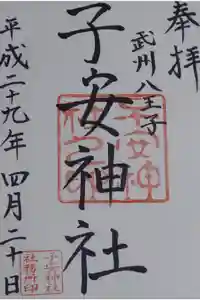 奉拝
武州八王子
子安神社
平成二十九年四月二十日
社務所印